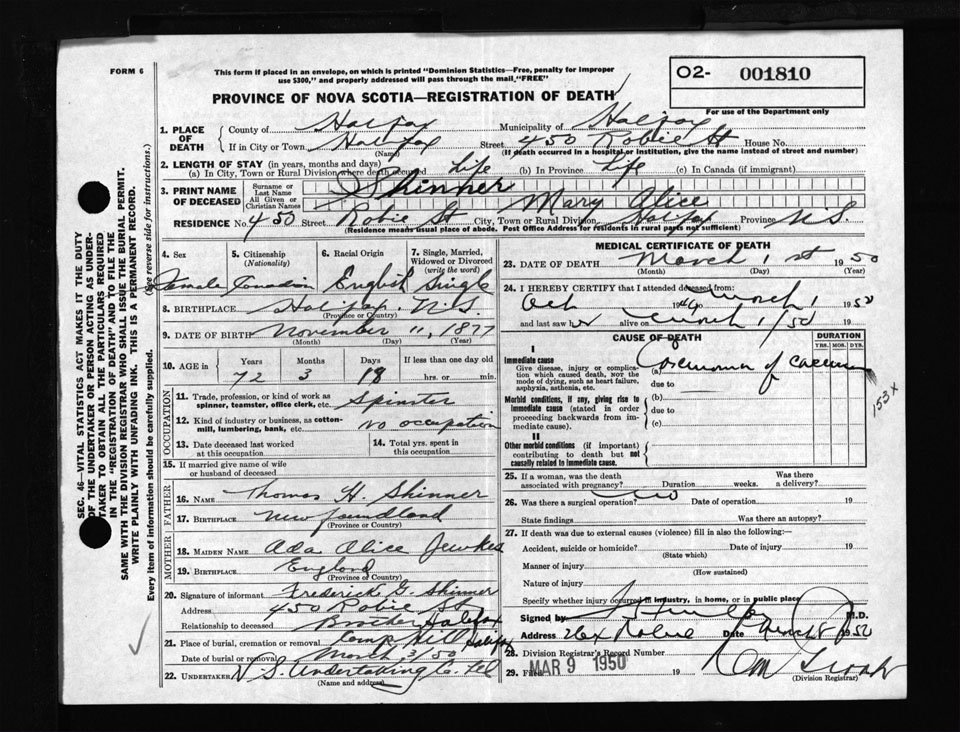 FORM 6
This form if placed in an envelope, on which is printed "Dominion Statistics—Free, penalty for improper
use $300," and properly addressed will pass through the mail "FREE"
O2- 001810
For use of the Department only
PROVINCE OF NOVA SCOTIA—REGISTRATION OF DEATH
1. PLACE OF DEATH County of Halifax Municipality of Halifax
If in City or Town. Halifax Street 450 Robie St House No.
(Name) (If death occurred in a hospital or institution, give the name instead of street and number)
2. LENGTH OF STAY (in years, months and days)
(a) In City, Town or Rural Division where death occurred Life (b) In Province Life (c) In Canada (if immigrant)
3. PRINT NAME OF DECEASED Surname or Last Name Skinner
All Given or Christian Names Mary Alice
RESIDENCE No. 450 Street Robie St City, Town or Rural Division Halifax Province N.S.
(Residence means usual place of abode. Post Office Address for residents in rural parts not sufficient)
4. Sex 5. Citizenship (Nationality) 6. Racial Origin 7. Single, Married, Widowed or Divorced (write the word)
Female Canadian English Single
8. BIRTHPLACE Halifax, N.S.
(Province or Country)
9. DATE OF BIRTH November 11, 1877
(Month) (Day) (Year)
10. AGE in Years Months Days If less than one day old
72 3 18 hrs. or min.
OCCUPATION
11. Trade, profession, or kind of work as spinner, teamster, office clerk, etc. Spinster
12. Kind of industry or business, as cotton-mill, lumbering, bank, etc. no occupation
13. Date deceased last worked at this occupation
14. Total yrs. spent in this occupation
15. If married give name of wife or husband of deceased
FATHER
16. NAME Thomas H. Skinner
17. BIRTHPLACE Newfoundland
(Province or Country)
MOTHER
18. MAIDEN NAME Ada Alice Jewkes
19. BIRTHPLACE England
(Province or Country)
20. Signature of informant Frederick G. Skinner
Address 450 Robie St
Relationship to deceased Brother Halifax
21. Place of burial, cremation or removal Camp Hill Halifax
Date of burial or removal March 3/50
22. UNDERTAKER N.S. Undertaking Co. Ltd
(Name and address)
MEDICAL CERTIFICATE OF DEATH
23. DATE OF DEATH March 1st 1950
(Month) (Day) (Year)
24. I HEREBY CERTIFY that I attended deceased from:
Oct 1949 March 1 1950
and last saw her alive on March 1/50 19
CAUSE OF DEATH DURATION
YRS. MOS. DYS.
I
Immediate cause
Give disease, injury or complication which caused death, NOT the mode of dying, such as heart failure, asphyxia, asthenia, etc.
(a) Carcinoma of caecum
due to
153x
Morbid conditions, if any, giving rise to immediate cause (stated in order proceeding backwards from immediate cause).
(b)
due to
(c)
II
Other morbid conditions (if important) contributing to death but not causally related to immediate cause.
25. If a woman, was the death associated with pregnancy? Duration weeks. Was there a delivery?
26. Was there a surgical operation? No Date of operation 19
State findings Was there an autopsy?
27. If death was due to external causes (violence) fill in also the following:
Accident, suicide or homicide? Date of injury 19
(State which)
Manner of injury
(How sustained)
Nature of injury
Specify whether injury occurred in industry, in home, or in public place
Signed by M.D.
Address Robie Date March 1950
28. Division Registrar's Record Number
29. Filed MAR 9 1950 19
(Division Registrar)
SEC. 46—VITAL STATISTICS ACT MAKES IT THE DUTY
OF THE UNDERTAKER OR PERSON ACTING AS UNDER-
TAKER TO OBTAIN ALL THE PARTICULARS REQUIRED
IN THE "REGISTRATION OF DEATH" AND TO FILE THE
SAME WITH THE DIVISION REGISTRAR WHO SHALL ISSUE THE BURIAL PERMIT.
WRITE PLAINLY WITH UNFADING INK. THIS IS A PERMANENT RECORD.
Every item of information should be carefully supplied. (See reverse side for instructions.)